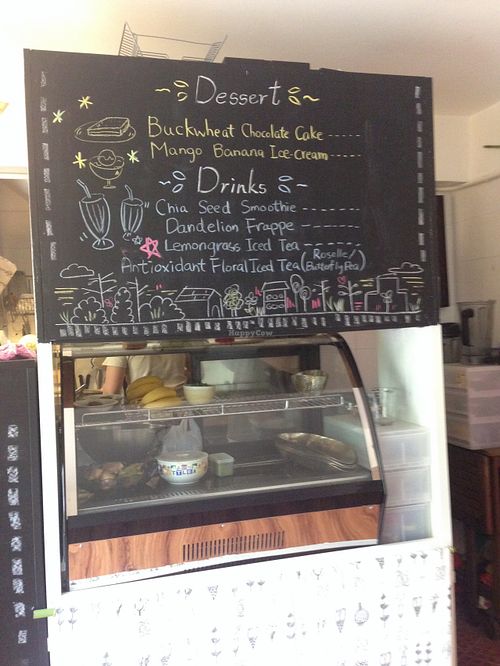 Dessert
Buckwheat Chocolate Cake -----
Mango Banana Ice-cream -----
Drinks
Chia Seed Smoothie -------
Dandelion Frappe -----
Lemongrass Iced Tea -------
Antioxidant Floral Iced Tea (Roselle/
Butterfly Pea)
HappyCow